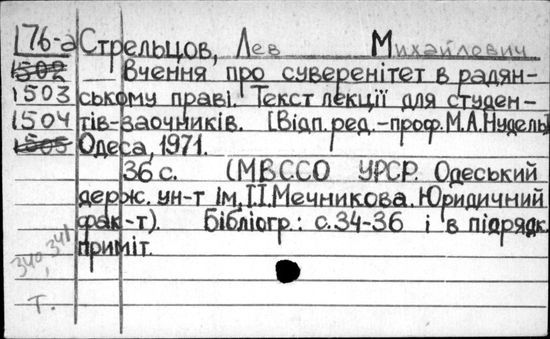 176-а Стрельцов, Лев Михайлович
1502 Вчення про суверенітет в радян-
1503 ському праві. Текст лекції для студен-
1504 тів-заочників. [Відп.ред.-проф.М.А.Нудель]
1505 Одеса, 1971.
36 с. (МВССО УРСР. Одеський
держ. ун-т ім. І.І.Мечникова. Юридичний
фак-т). Бібліогр.: с.34-36 і в підрядк.
приміт.
340, 341
т.